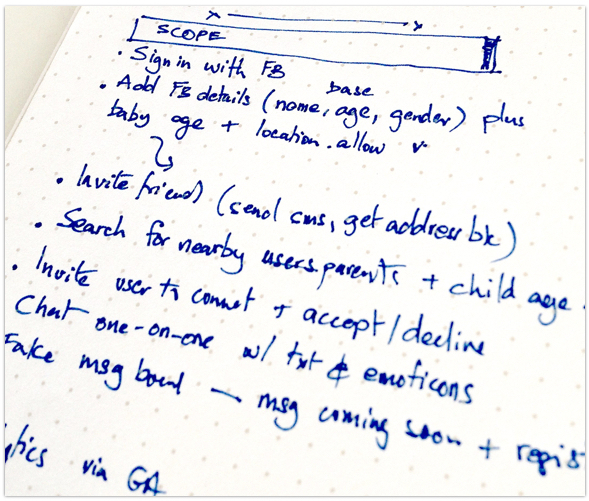 SCOPE
• Sign in with FB
base
• Add FB details (name, age, gender) plus
baby age + location. allow
• Invite friend (send sms, get address bk)
• Search for nearby users. parents + child age.
• Invite user to connet + accept/decline
Chat one-on-one w/ txt & emoticons
Fake msg board — msg coming soon + regis
ytics via GA